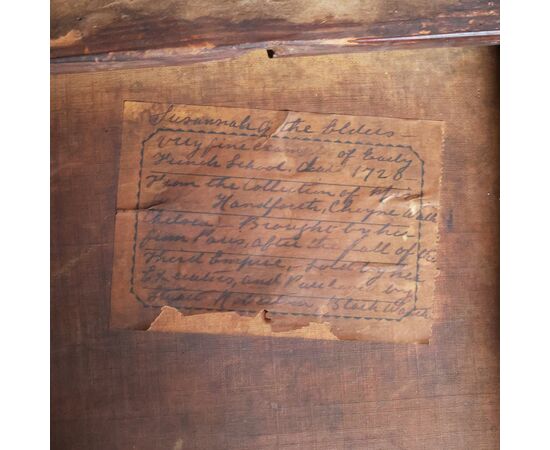 Susannah & the Elders
Very fine of Early
French School, 1720
From the Collection of
Handforth, Cheyne Walk
Chelsea. Brought by her
from Paris, after the fall of the
Third Empire, Sold by her
Executors, and Purchased by
Stuart Robertson Black Watch